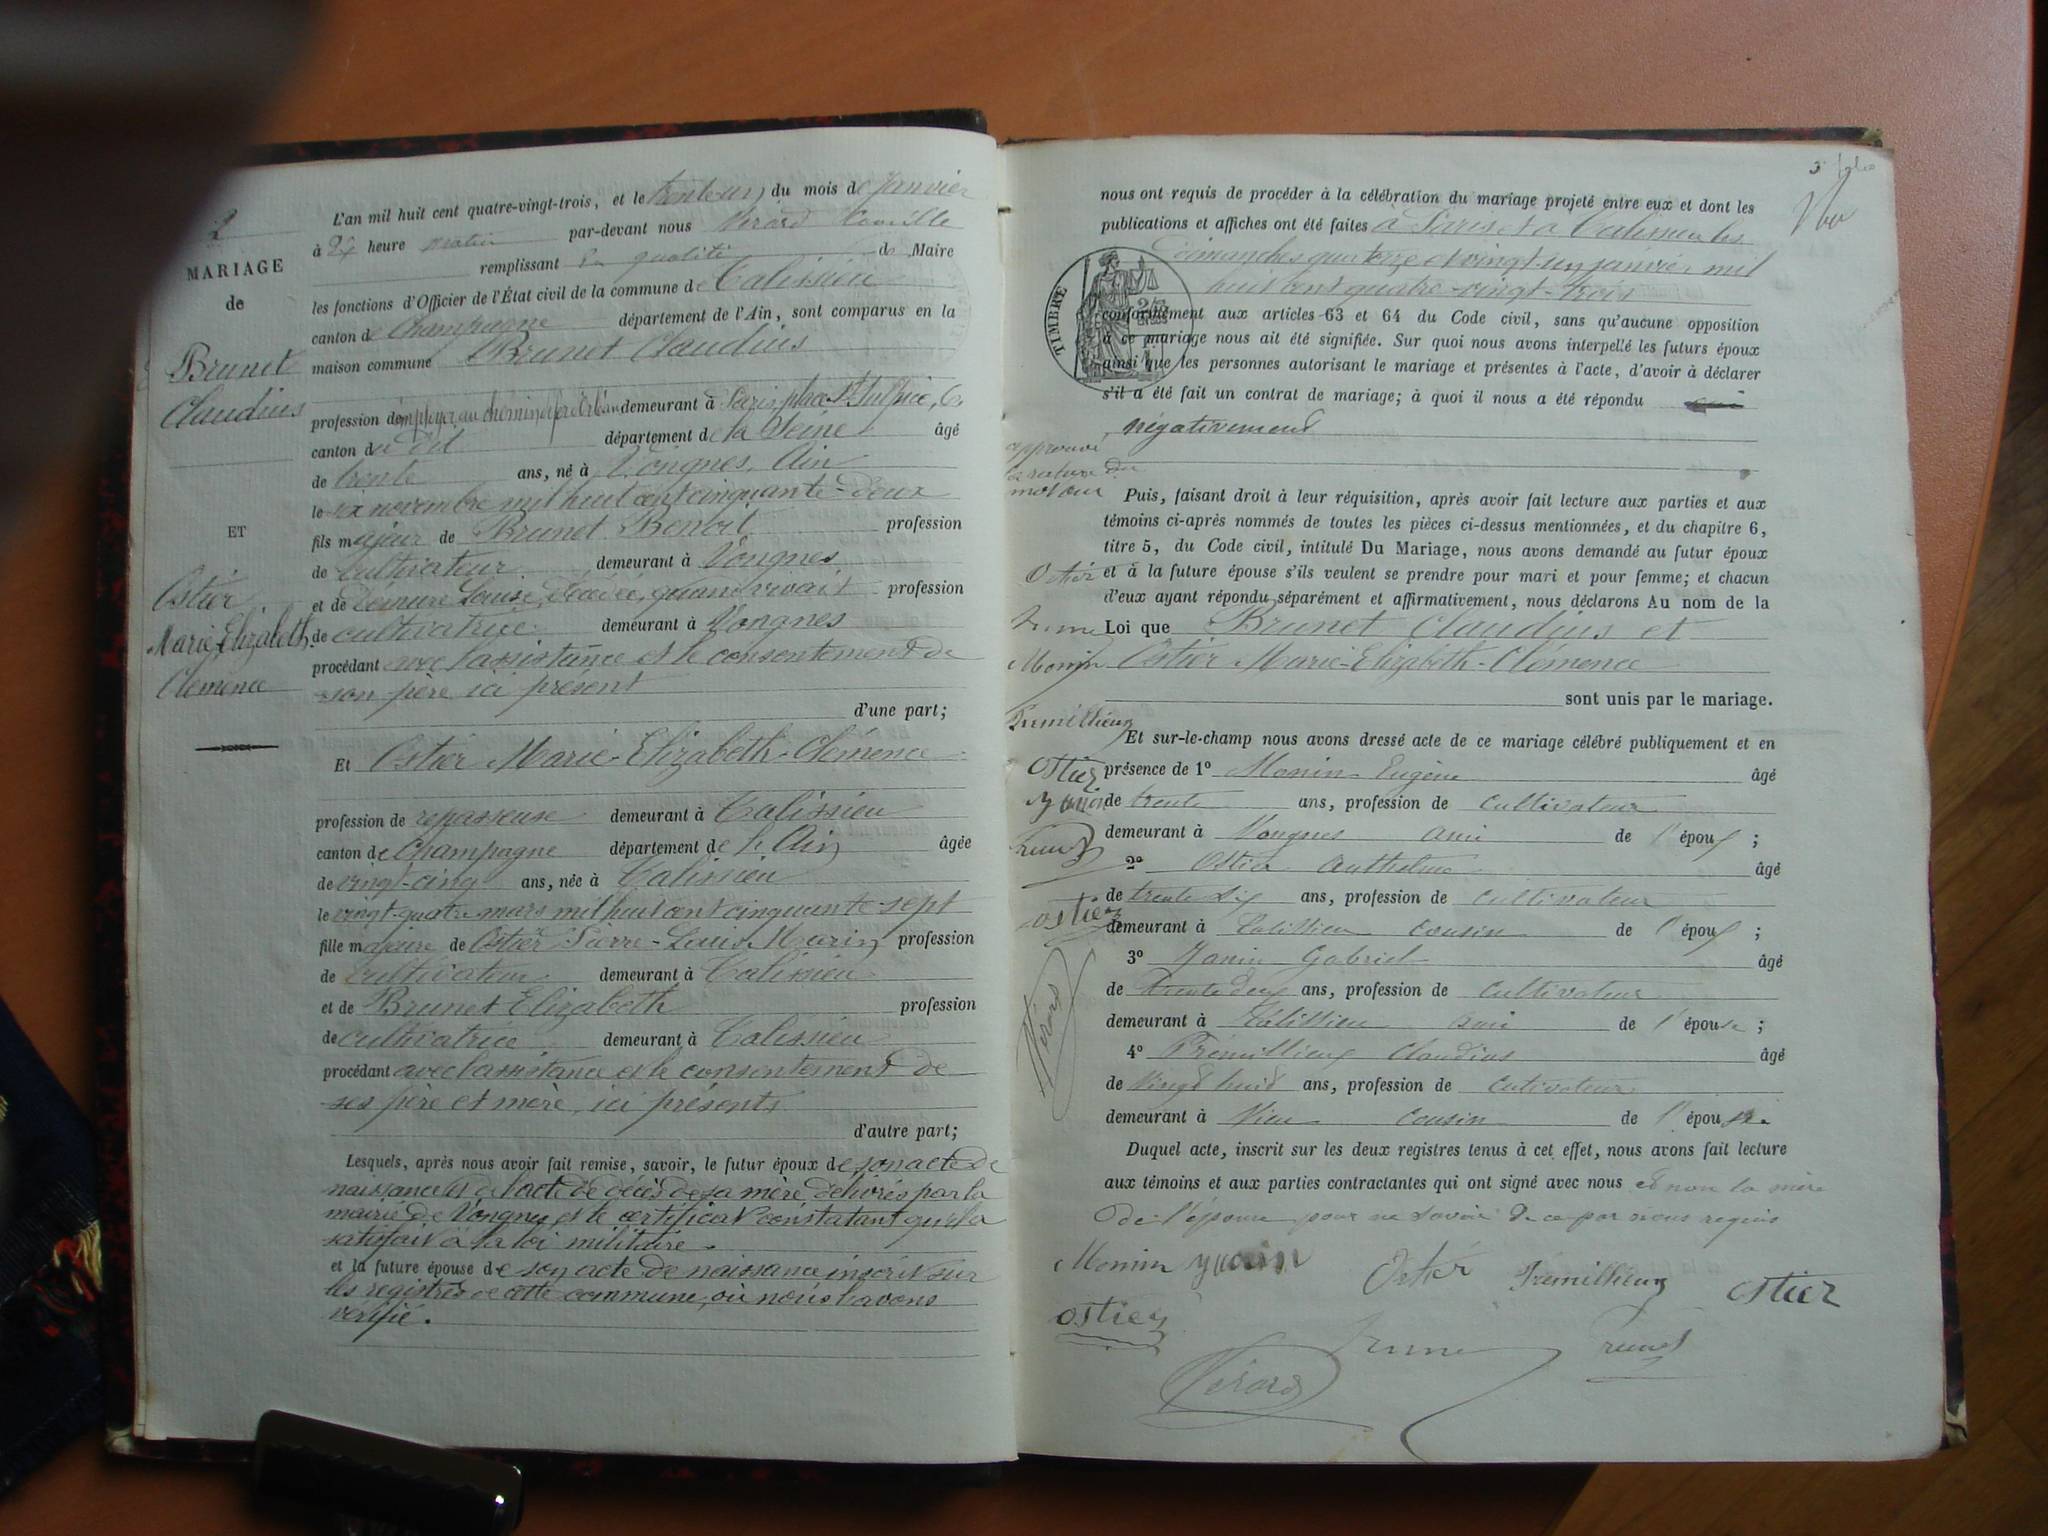 2
MARIAGE
de
Brunet
Claudius
ET
Ostier
Marie-Elizabeth-
Clémence
L'an mil huit cent quatre-vingt-trois, et le trente un du mois de Janvier
à heure matin par-devant nous Vérard Camille
remplissant en qualité de Maire
les fonctions d'Officier de l'État civil de la commune de Talissieu
canton de Champagne département de l'Ain, sont comparus en la
maison commune Brunet Claudius
profession d'employé au chemin de fer d'Orléans demeurant à Paris place St Sulpice, 6,
canton du dit département de la Seine âgé
de trente ans, né à Vongnes, Ain
le six novembre mil huit cent cinquante-deux
fils majeur de Brunet Benoit profession
de cultivateur demeurant à Vongnes
et de Demure Louise, décédée, quand vivait profession
de cultivatrice demeurant à Vongnes
procédant avec l'assistance et le consentement de
son père ici présent
d'une part;
Et Ostier Marie-Elizabeth-Clémence
profession de repasseuse demeurant à Talissieu
canton de Champagne département de l'Ain âgée
de vingt-cinq ans, née à Talissieu
le vingt-quatre mars mil huit cent cinquante-sept
fille majeure de Ostier Pierre-Louis-Marin profession
de cultivateur demeurant à Talissieu
et de Brunet Elizabeth profession
de cultivatrice demeurant à Talissieu
procédant avec l'assistance et le consentement de
ses père et mère, ici présents
d'autre part;
Lesquels, après nous avoir fait remise, savoir, le futur époux de son acte de
naissance et de l'acte de décès de sa mère, délivrés par la
mairie de Vongnes et le certificat constatant qu'il a
satisfait à la loi militaire.
et la future épouse de son acte de naissance inscrit sur
les registres de cette commune, où nous l'avons
vérifié.
3 folio
nous ont requis de procéder à la célébration du mariage projeté entre eux et dont les
publications et affiches ont été faites à Paris et à Talissieu les
dimanches quatorze et vingt-un janvier mil
huit cent quatre-vingt-trois
TIMBRE
conformément aux articles 63 et 64 du Code civil, sans qu'aucune opposition
à ce mariage nous ait été signifiée. Sur quoi nous avons interpellé les futurs époux
ainsi que les personnes autorisant le mariage et présentes à l'acte, d'avoir à déclarer
s'il a été fait un contrat de mariage; à quoi il nous a été répondu oui
négativement
approuvé
la rature du
mot oui
Puis, faisant droit à leur réquisition, après avoir fait lecture aux parties et aux
témoins ci-après nommés de toutes les pièces ci-dessus mentionnées, et du chapitre 6,
titre 5, du Code civil, intitulé Du Mariage, nous avons demandé au futur époux
Ostier et à la future épouse s'ils veulent se prendre pour mari et pour femme; et chacun
d'eux ayant répondu séparément et affirmativement, nous déclarons Au nom de la
Loi que Brunet Claudius et
Monin Ostier Marie-Elizabeth-Clémence
sont unis par le mariage.
Prémillieux
Et sur-le-champ nous avons dressé acte de ce mariage célébré publiquement et en
Ostier présence de 1° Monin Eugène âgé
de trente ans, profession de cultivateur
demeurant à Vongnes ami de l'époux ;
2° Ostier Anthelme âgé
de trente six ans, profession de cultivateur
Ostier demeurant à Talissieu cousin de l'époux ;
3° Janin Gabriel âgé
de trente deux ans, profession de cultivateur
demeurant à Talissieu ami de l'épouse ;
Vérard
4° Prémillieux Claudius âgé
de vingt huit ans, profession de cutivateur
demeurant à Vieu cousin de l'épouse.
Duquel acte, inscrit sur les deux registres tenus à cet effet, nous avons fait lecture
aux témoins et aux parties contractantes qui ont signé avec nous et non la mère
de l'épouse pour ne savoir de ce par nous requis
Monin Ostier Prémillieux Ostier
Ostier
Vérard